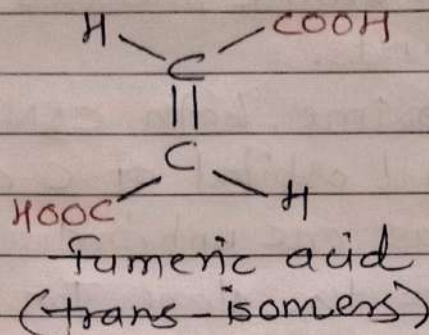 H COOH
C
||
C
HOOC H
fumeric acid
(trans-isomers)